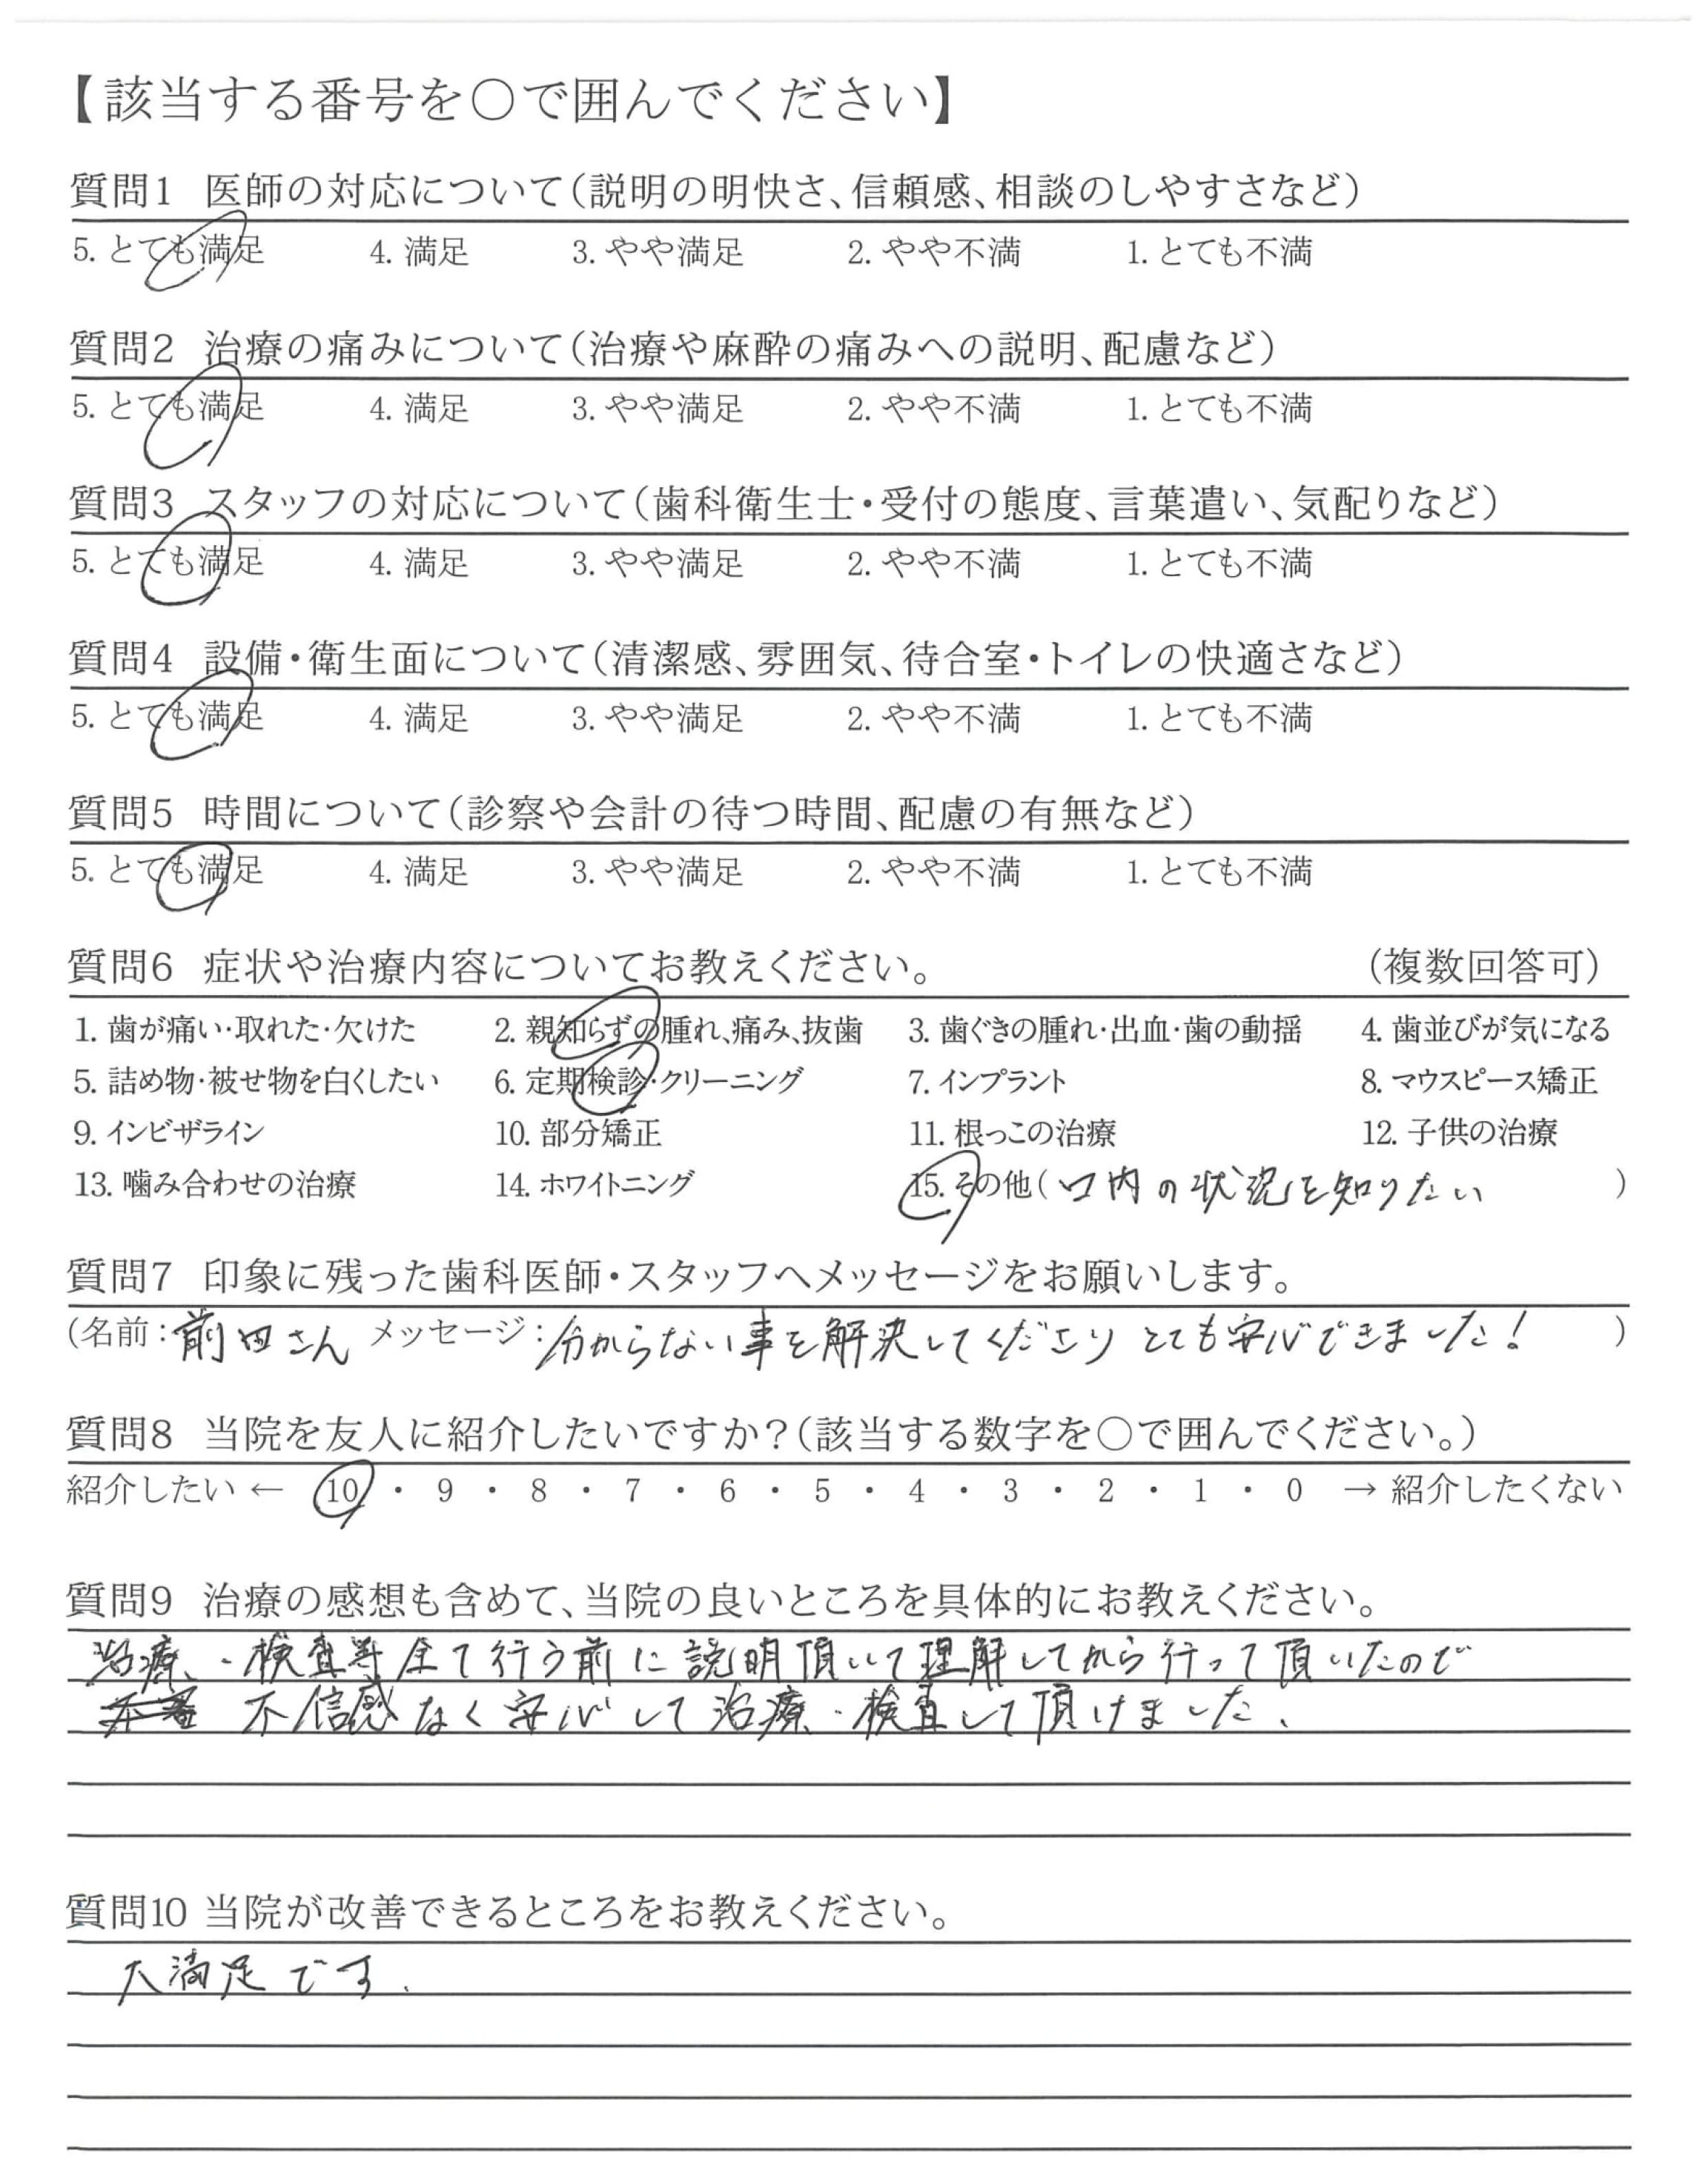 【該当する番号を〇で囲んでください】
質問1 医師の対応について(説明の明快さ、信頼感、相談のしやすさなど)
5. とても満足 4. 満足 3. やや満足 2. やや不満 1. とても不満
質問2 治療の痛みについて(治療や麻酔の痛みへの説明、配慮など)
5. とても満足 4. 満足 3. やや満足 2. やや不満 1. とても不満
質問3 スタッフの対応について(歯科衛生士・受付の態度、言葉遣い、気配りなど)
5. とても満足 4. 満足 3. やや満足 2. やや不満 1. とても不満
質問4 設備・衛生面について(清潔感、雰囲気、待合室・トイレの快適さなど)
5. とても満足 4. 満足 3. やや満足 2. やや不満 1. とても不満
質問5 時間について(診察や会計の待つ時間、配慮の有無など)
5. とても満足 4. 満足 3. やや満足 2. やや不満 1. とても不満
質問6 症状や治療内容についてお教えください。 (複数回答可)
1. 歯が痛い・取れた・欠けた 2. 親知らずの腫れ、痛み、抜歯 3. 歯ぐきの腫れ・出血・歯の動揺 4. 歯並びが気になる
5. 詰め物・被せ物を白くしたい 6. 定期検診・クリーニング 7. インプラント 8. マウスピース矯正
9. インビザライン 10. 部分矯正 11. 根っこの治療 12. 子供の治療
13. 噛み合わせの治療 14. ホワイトニング 15. その他(口内の状況を知りたい)
質問7 印象に残った歯科医師・スタッフへメッセージをお願いします。
(名前:前田さん メッセージ:分からない事を解決してくださり とても安心できました!)
質問8 当院を友人に紹介したいですか?(該当する数字を〇で囲んでください。)
紹介したい ← 10 ・ 9 ・ 8 ・ 7 ・ 6 ・ 5 ・ 4 ・ 3 ・ 2 ・ 1 ・ 0 → 紹介したくない
質問9 治療の感想も含めて、当院の良いところを具体的にお教えください。
治療・検査等全て行う前に説明頂いて理解してから行って頂いたので
不信感なく安心して治療・検査して頂けました。
質問10 当院が改善できるところをお教えください。
大満足です。